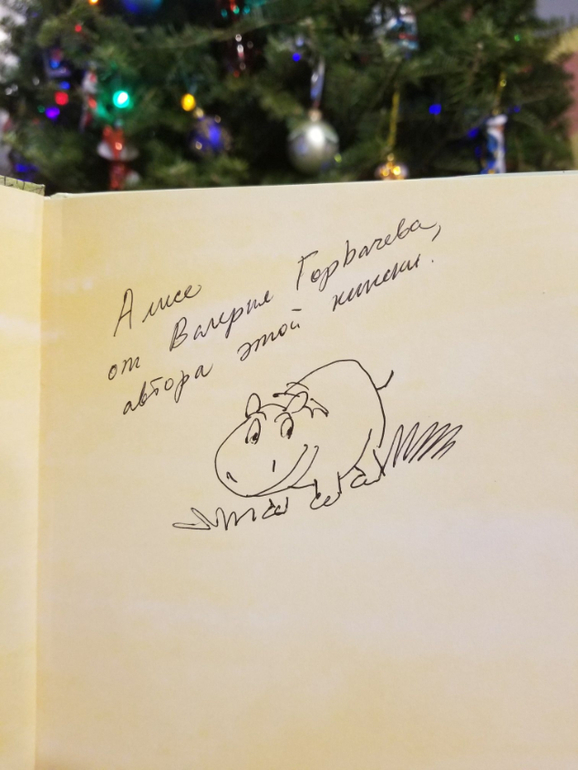 Алисе
от Валерия Горбачева,
автора этой книжки.